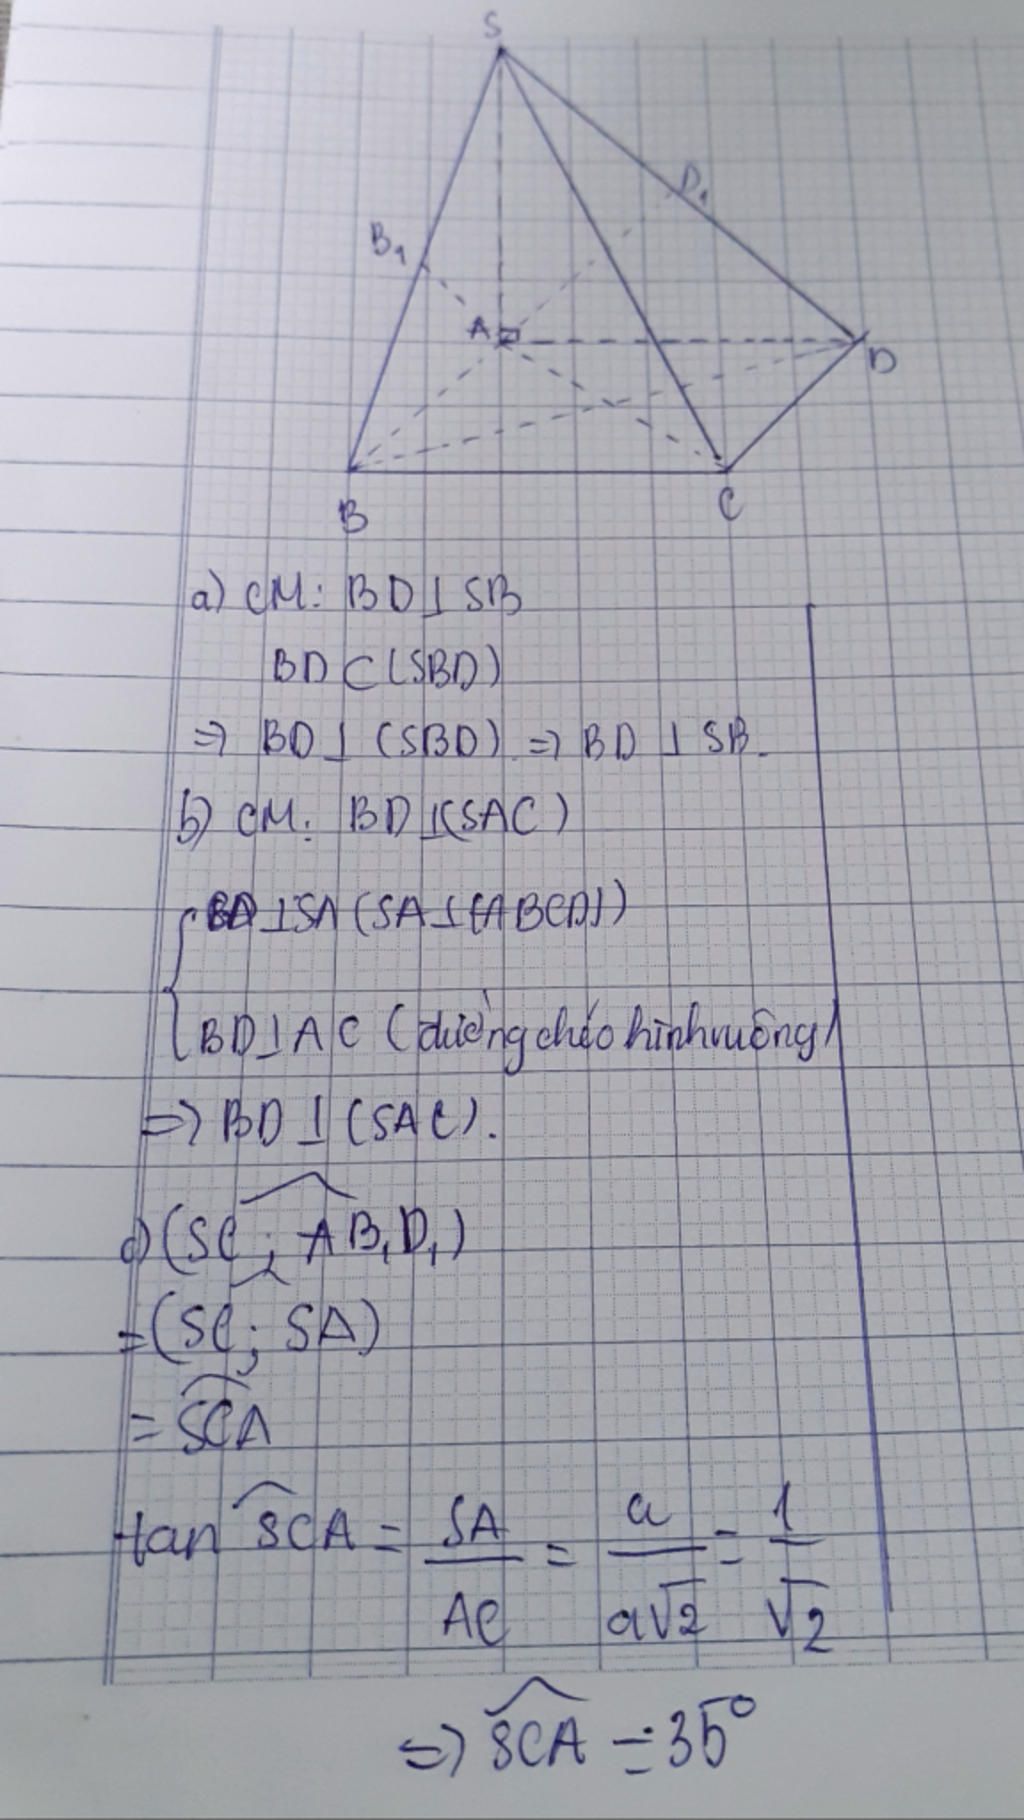 S
D₁
B₁
A
D
B
C
a) CM: BD ⊥ SB
BD ⊂ (SBD)
⇒ BD ⊥ (SBD) ⇒ BD ⊥ SB.
b) CM: BD ⊥ (SAC)
BD ⊥ SA (SA ⊥ (ABCD))
BD ⊥ AC (đường chéo hình vuông)
⇒ BD ⊥ (SAC).
c) (SC; AB₁D₁)
= (SC; SA)
= SCA
tan SCA = SA/AC = a/a√2 = 1/√2
⇒ SCA = 35°